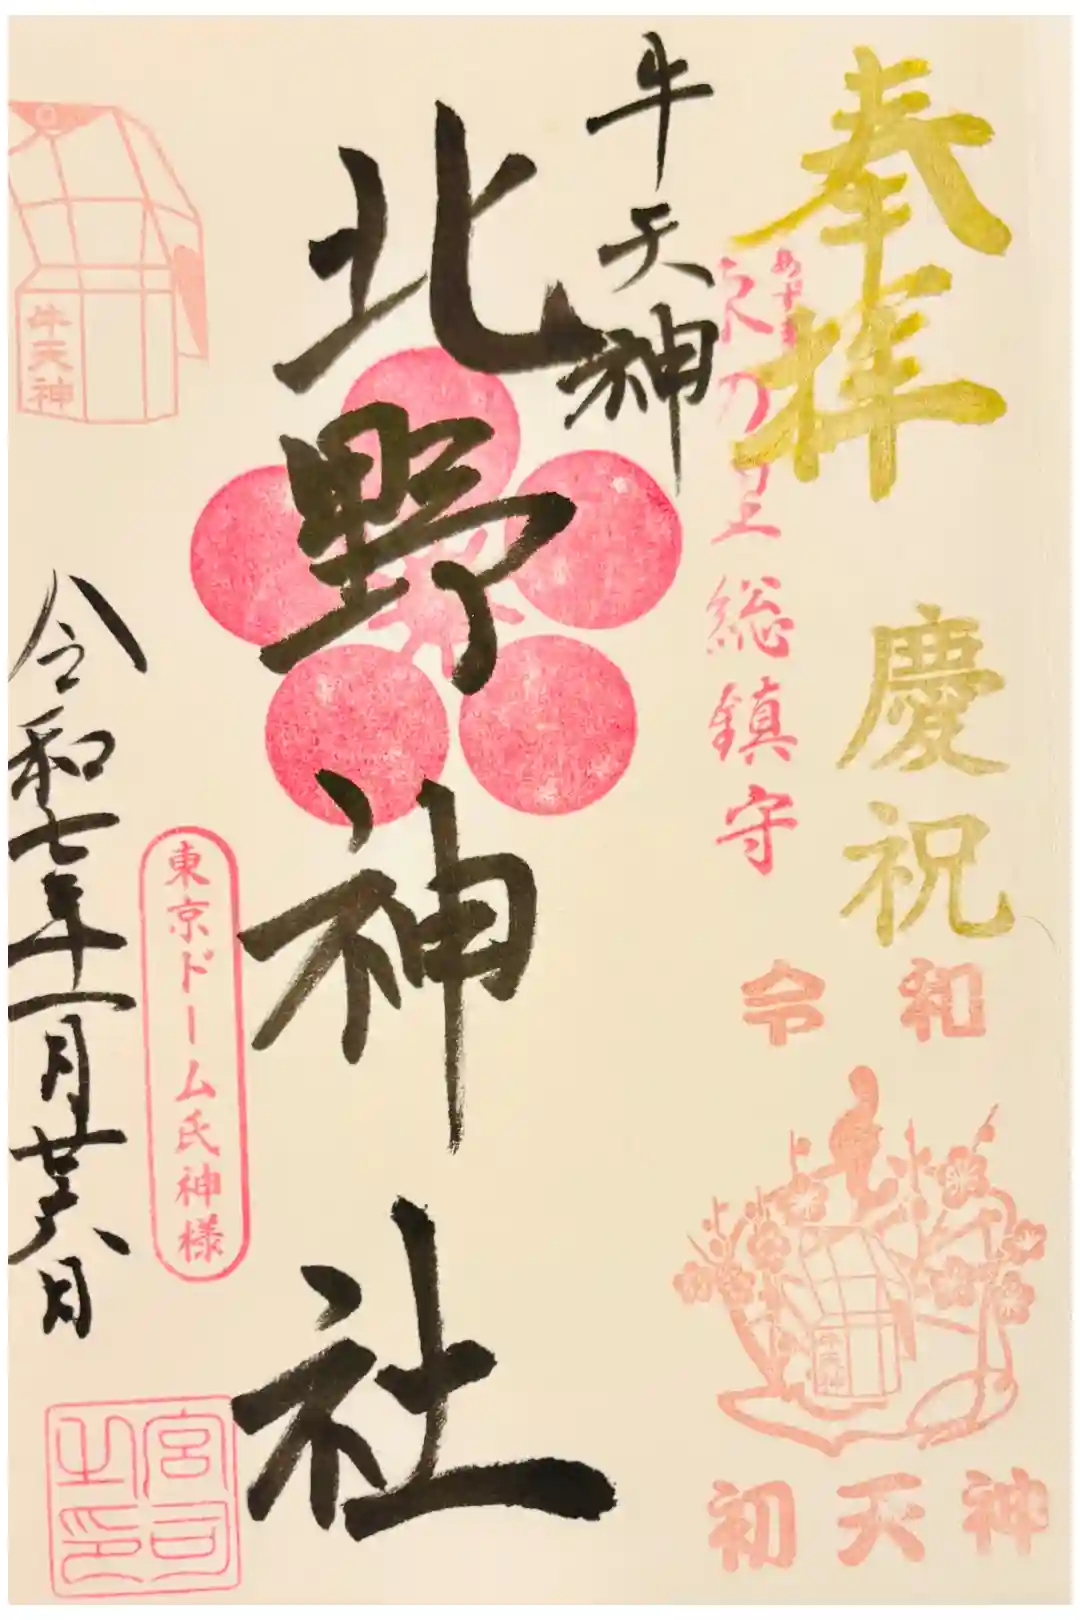 奉拝
慶祝
令和
牛天神
初天神
乃里総鎮守
牛天神
北野神社
東京ドーム氏神様
牛天神
令和七年一月廿六日
宮司之印